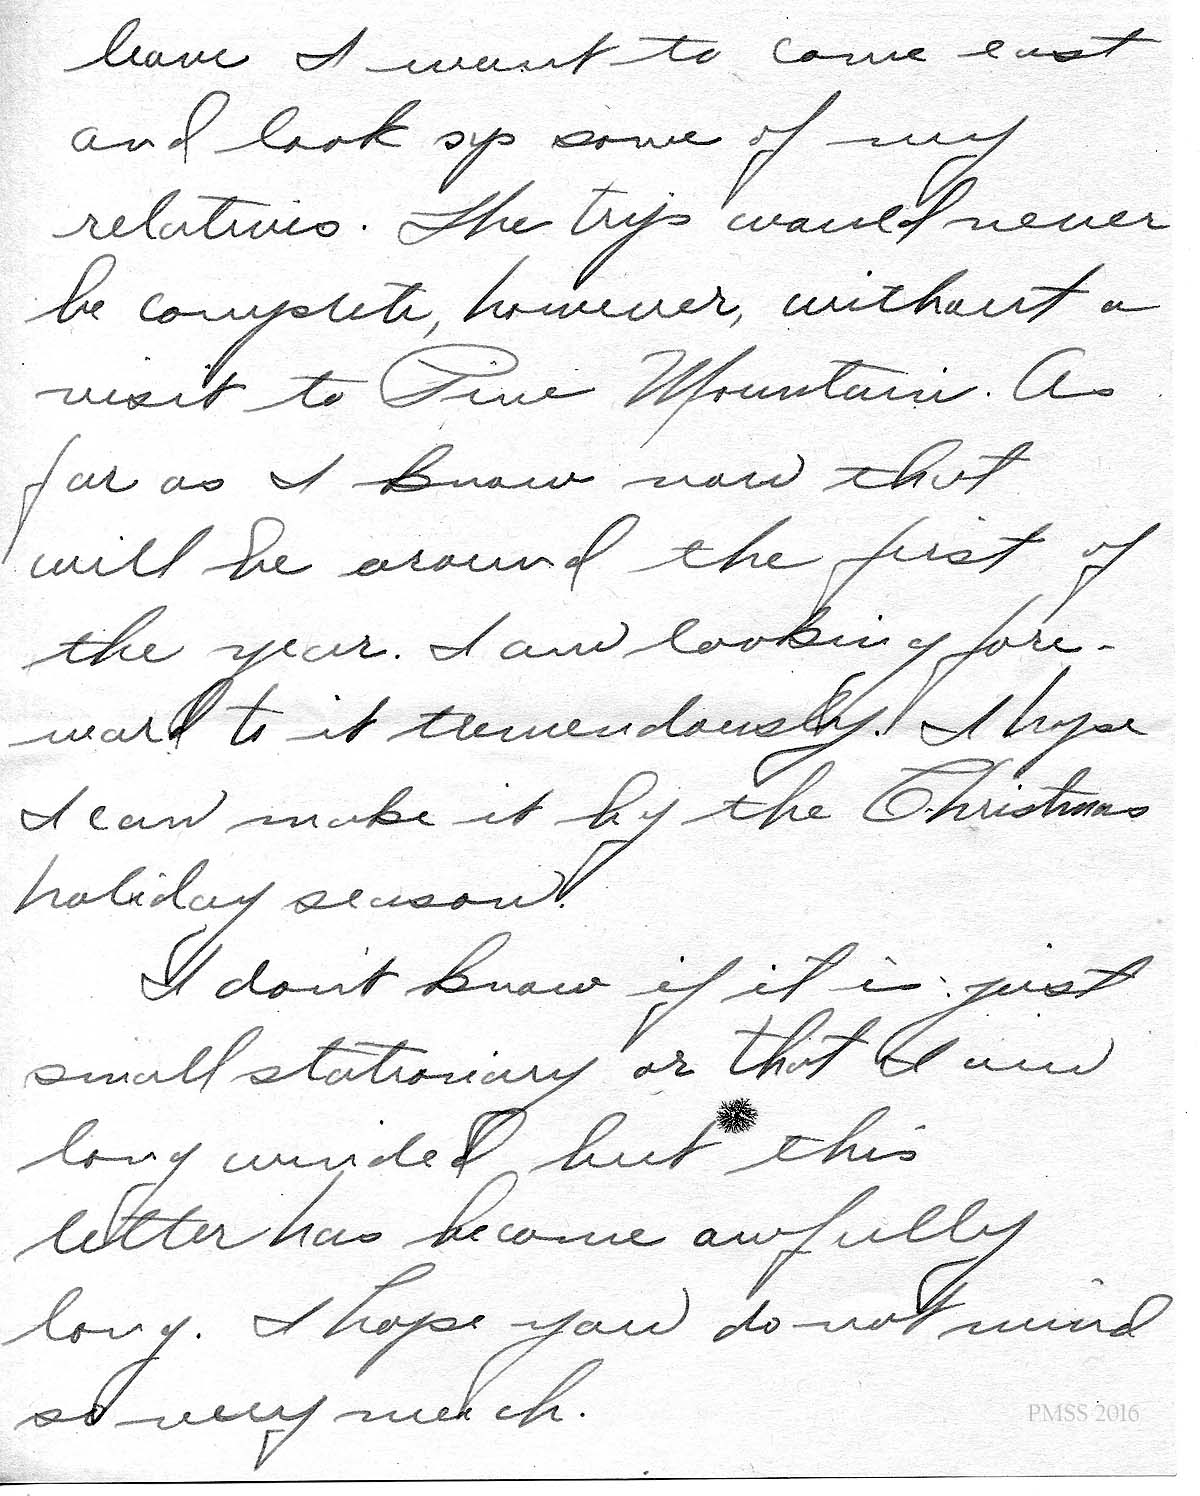 leave I want to come east
and look up some of my
relatives. The trip would never
be complete, however, without a
visit to Pine Mountain. As
far as I know now that
will be around the first of
the year. I am looking fore-
ward to it tremendously. I hope
I can make it by the Christmas
holiday season.
I don't know if it is just
small stationary or that I am
long winded but this
letter has become awfully
long. I hope you do not mind
so very much.
PMSS 2016